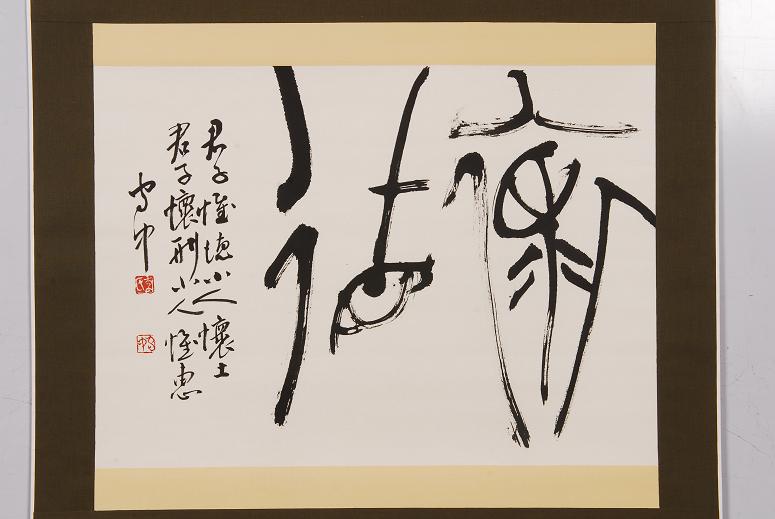 懷德
君子懷悳小人懷土
君子懷刑小人懷惠